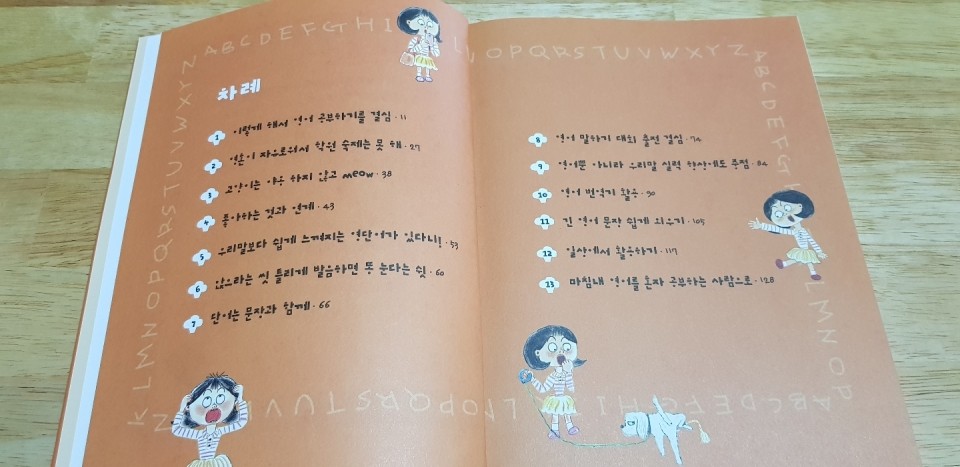 ABCDEFGTHI
차례
1 이렇게 해서 영어 공부하기를 결심 · 11
2 영혼이 자유로워서 학원 숙제는 못 해 · 27
3 고양이는 야옹 하지 않고 meow · 38
4 좋아하는 것과 연계 · 43
5 우리말보다 쉽게 느껴지는 영단어가 있다니! · 53
6 앉으라는 씻 틀리게 발음하면 똥 눈다는 쉿 · 60
7 단어는 문장과 함께 · 66
OPQRSTUVWXYZ
8 영어 말하기 대회 출전 결심 · 74
9 영어뿐 아니라 우리말 실력 향상에도 중점 · 84
10 영어 번역기 활용 · 90
11 긴 영어 문장 쉽게 외우기 · 105
12 일상에서 활용하기 · 117
13 마침내 영어를 혼자 공부하는 사람으로 · 128
ABCDEFG
LMNOP